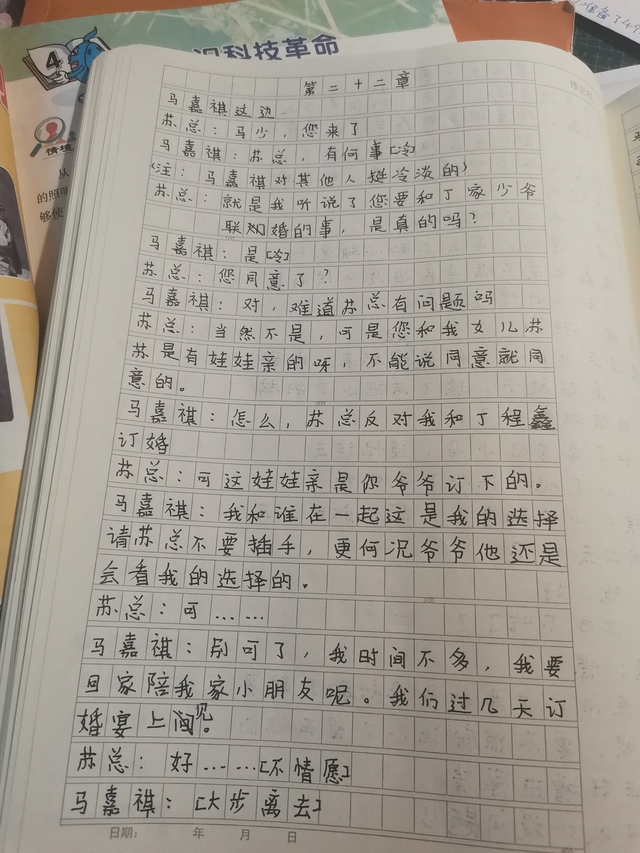 4
识科技革命
情境
从
的照明
够使
第二十二章
马嘉祺这边
苏总：马少，您来了
马嘉祺：苏总，有何事[冷]
(注：马嘉祺对其他人挺冷淡的)
苏总：就是我听说了您要和丁家少爷
联姻婚的事，是真的吗？
马嘉祺：是[冷]
苏总：您同意了？
马嘉祺：对，难道苏总有问题吗
苏总：当然不是，可是您和我女儿苏
苏是有娃娃亲的呀，不能说同意就同
意的。
马嘉祺：怎么，苏总反对我和丁程鑫
订婚
苏总：可这娃娃亲是你爷爷订下的。
马嘉祺：我和谁在一起这是我的选择
请苏总不要插手，更何况爷爷他还是
会看我的选择的。
苏总：可……
马嘉祺：别可了，我时间不多，我要
回家陪我家小朋友呢。我们过几天订
婚宴上见。
苏总：好……[不情愿]
马嘉祺：[大步离去]
日期： 年 月 日